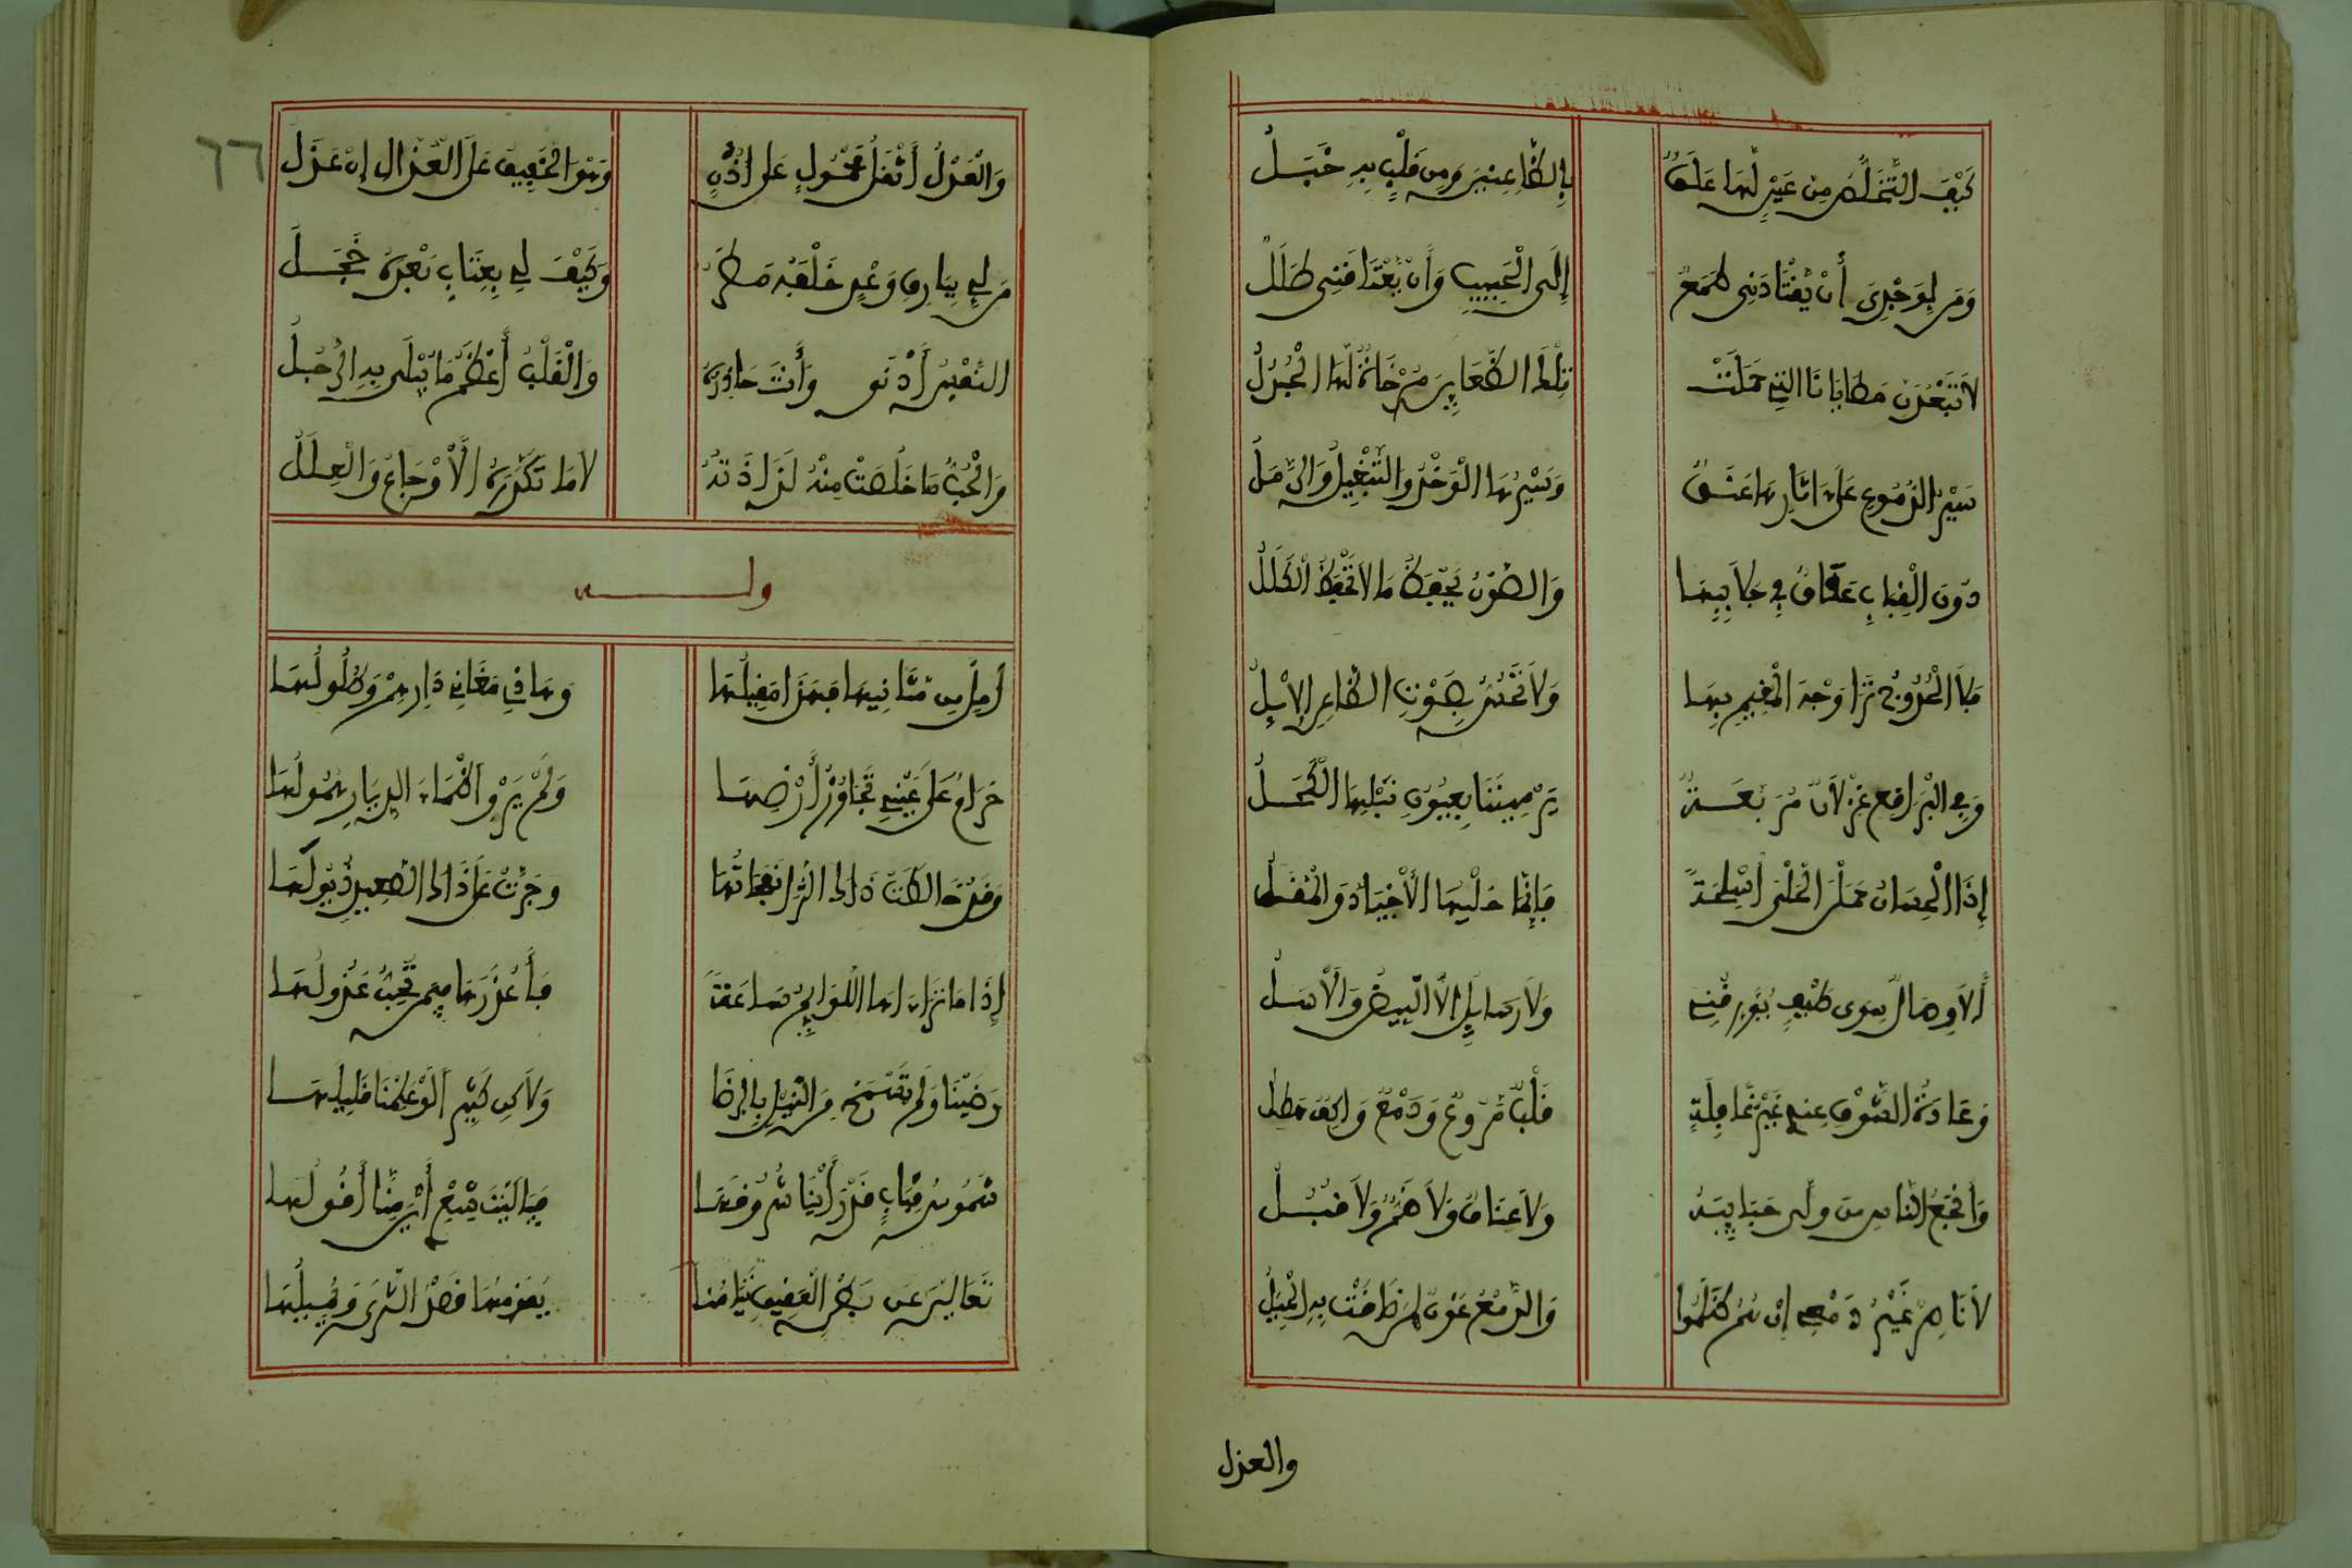 كَيْفَ التَّخَلُّصُ مِن عَيْنٍ لَهَا عَلَقٌ بِالظَّاعِنِينَ وَمِن قَلْبٍ بِهِ خَبَلُ
وَمَن لِوَجْدِىَ أَنْ يَقْتَادَنِى طَمَعٌ إِلَى الْحَبِيبِ وَأَنْ يَعْتَاقَنِى طَلَلُ
لاَ تَبْعُدَنَّ مَطَايَانَا الَّتِي حَمَلَتْ تِلْكَ الظَّعَايِنَ مُرْخَاةً لَهَا الْجُدُلُ
سَيْرُ الدُّمُوعِ عَلَى اثَارِهَا عَنَقٌ وَسَيْرُهَا الْوَخْدُ وَالتَّبْغِيلُ وَالرَّمَلُ
دُونَ الْقِبَابِ عَفَافٌ فِي جَلاَبِيبِهَا وَالصَّوْنُ يَحْفَظُ مَا لاَ تَحْفَظُ الْكِلَلُ
فَلاَ الْحُدُوجُ تَرَا وَجْهَ الْمُقِيمِ بِهَا وَلاَ تَحُسُّ بِصَوْتِ الظَّاعِنِ الإِبِلُ
وَفِي الْبَرَاقِعِ غِزْلاَنٌ مُرَبَّبَةٌ يَرْمِينَنَا بِعُيُونٍ نَبْلُهَا الْكَحَلُ
إِذَا الْحِسَانُ حَمَلْنَ الْحَلْىَ أَسْلِحَةً فَإِنَّمَا حَلْيُهَا الأَجْيَادُ وَالْمُقَلُ
أَلاَ وِصَالٌ سِوَى طَيْفٍ يُؤَرِّقُنِي وَلاَ رَسَايِلَ إِلاَّ الْبِيضُ وَالأَسَلُ
وَعَادَةُ الشَّوْقِ عِنْدِي غَيْرُ غَافِلَةٍ قَلْبٌ مُرَوَّعٌ وَدَمْعٌ وَاكِفٌ هَطِلُ
وَأَفْجَعُ النَّاسِ مَن وَلَّى حَبَايِبُهُ وَلاَ عِنَاقٌ وَلاَ ضَمٌّ وَلاَ قُبَلُ
لاَ نَاصِرٌ غَيْرُ دَمْعِي إِنْ هُمُ ظَلَمُوا وَالدَّمْعُ عَوْنٌ لِمَن ضَاقَتْ بِهِ الْحِيَلُ
والعذل
٦٦
وَالْعَذْلُ أَثْقَلُ مَحْمُولٍ عَلَى أُذُنٍ وَهْوَ الْخَفِيفُ عَلَى الْعُذَّالِ إِنْ عَذَلُ
مَن لِي بِبَارِقِ وَعْدٍ خَلْفَهُ مَطَرٌ وَكَيْفَ لِي بِعِتَابٍ بَعْدَهُ خَجَلُ
النَّفْسُ أَدْنَى وَأَنْتَ حَاذِرُهُ وَالْقَلْبُ أَعْظَمُ مَا يُبْلَى بِهِ الرَّجُلُ
وَالْحُبُّ مَا خَلُصَتْ مِنْهُ لَذَاذَتُهُ لاَ مَا تُكَدِّرُهُ الأَوْجَاعُ وَالْعِلَلُ
ولـــه
أَمِلْ مِن مَثَانِيهَا فَهَذَا مَقِيلُهَا وَهَاذِي مَغَانِي دَارِهِمْ وَطُلُولُهَا
حَرَامٌ عَلَى عَيْنِي تَجَاوُزُ أَرْضِهَا وَلَمْ يَرْوِ أَظْمَاءَ الدِّيَارِ هُمُولُهَا
وَقَدْ خَالَطَتْ ذَاكَ الثَّرَا نَفَحَاتُهَا وَجُرَّتْ عَلَى ذَاكَ الصَّعِيدِ ذُيُولُهَا
إِذَا مَا تَرَاءَاهَا اللَّوَايِمُ سَاعَةً فَأَعْذَرُهَا فِيمَن تُحِبُّ عَذُولُهَا
رَضِينَا وَلَمْ تَسْمَحْ مِنَ النَّيْلِ بِالرِّضَا وَلاَكِن كَثِيرٌ لَوْ عَلِمْنَا قَلِيلُهَا
شُمُوسُ قِبَابٍ قَدْ رَأَيْنَا شُرُوقَهَا فَيَا لَيْتَ شِعْرِي أَيْنَ مِنَّا أُفُولُهَا
تَعَالَيْنَ عَن بَطْنِ الْعَقِيقِ تَيَامُنًا يُقَوِّمُهَا قَصْدُ السُّرَى وَيُمِيلُهَا